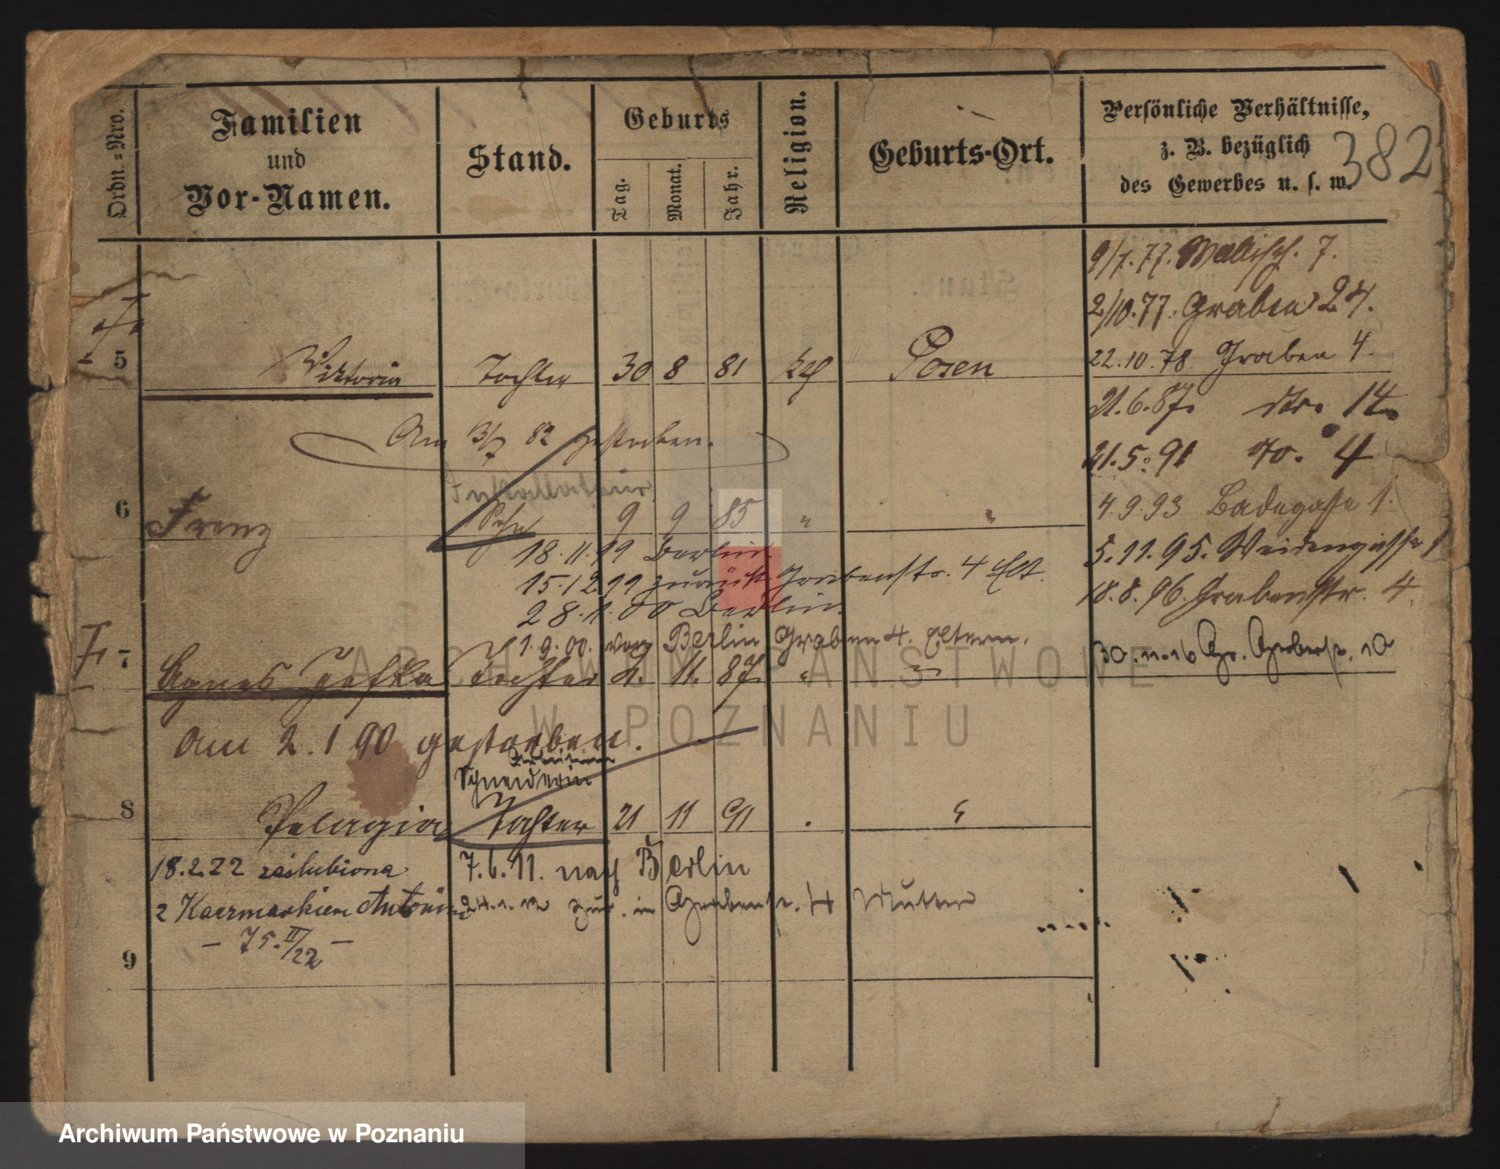 Ordn.=Nro.
Familien
und
Vor-Namen.
Stand.
Geburts
Tag.
Monat.
Jahr.
Religion.
Geburts-Ort.
Persönliche Verhältnisse,
z. B. bezüglich
des Gewerbes u. s. w.
382
9/7. 77. Wallisch. 7.
2/10. 77. Graben 24.
22.10.78. Graben 4.
21.6.87. dto. 14.
21.5.91 do. 4
4.9.93 Badegasse 1.
5.11.95. Weidengasse
18.8.96. Grabenstr. 4.
5 Viktoria Tochter 30 8 81 kth Posen
Am 3/7 82 gestorben.
6 Franz Sohn 9 9 85 " "
18.11.99 Berlin
15.12.99 zurück Grabenstr. 4 Elt.
28.1.00 Berlin.
1.9.00. von Berlin Graben 4. Eltern.
7 Agnes Tochter 2. 11. 87. " "
Am 2. 1 90 gestorben.
Schneiderin
8 Pelagia Tochter 21 11 91
18.2.22 zaślubiona
7.6.11. nach Berlin
in Grabenstr. 14 Mutter
9
Archiwum Państwowe
w Poznaniu
Archiwum Państwowe w Poznaniu